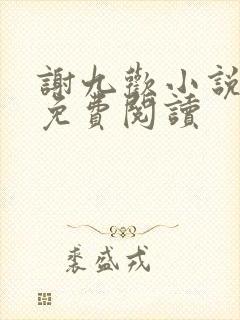 謝九歡小說
免費閱讀
裘盛戎